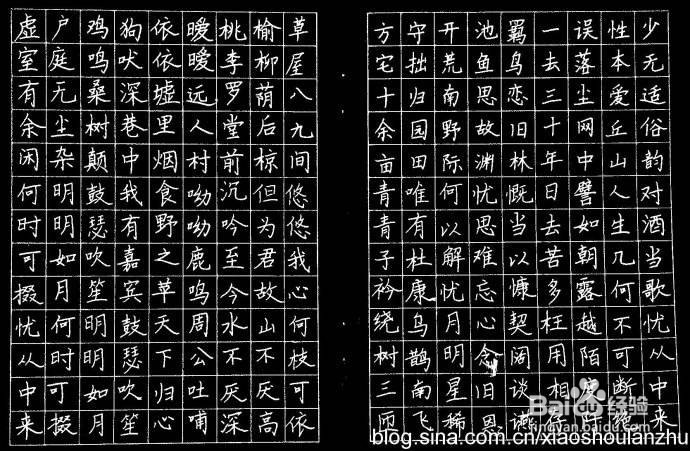 少无适俗韵对酒当歌忧从中来
性本爱丘山人生几何不可断绝
误落尘网中譬如朝露越陌度阡
一去三十年日去苦多枉用相存
羁鸟恋旧林慨当以慷契阔谈讌
池鱼思故渊忧思难忘心念旧恩
开荒南野际何以解忧月明星稀
守拙归园田唯有杜康乌鹊南飞
方宅十余亩青青子衿绕树三匝
草屋八九间悠悠我心何枝可依
榆柳荫后椋但为君故山不厌高
桃李罗堂前沉吟至今水不厌深
暧暧远人村呦呦鹿鸣周公吐哺
依依墟里烟食野之草天下归心
狗吠深巷中我有嘉宾鼓瑟吹笙
鸡鸣桑树颠鼓瑟吹笙明明如月
户庭无尘杂明明如月何时可掇
虚室有余闲何时可掇忧从中来
Baidu 经验
blog.sina.com.cn/xiaoshoulanzhu